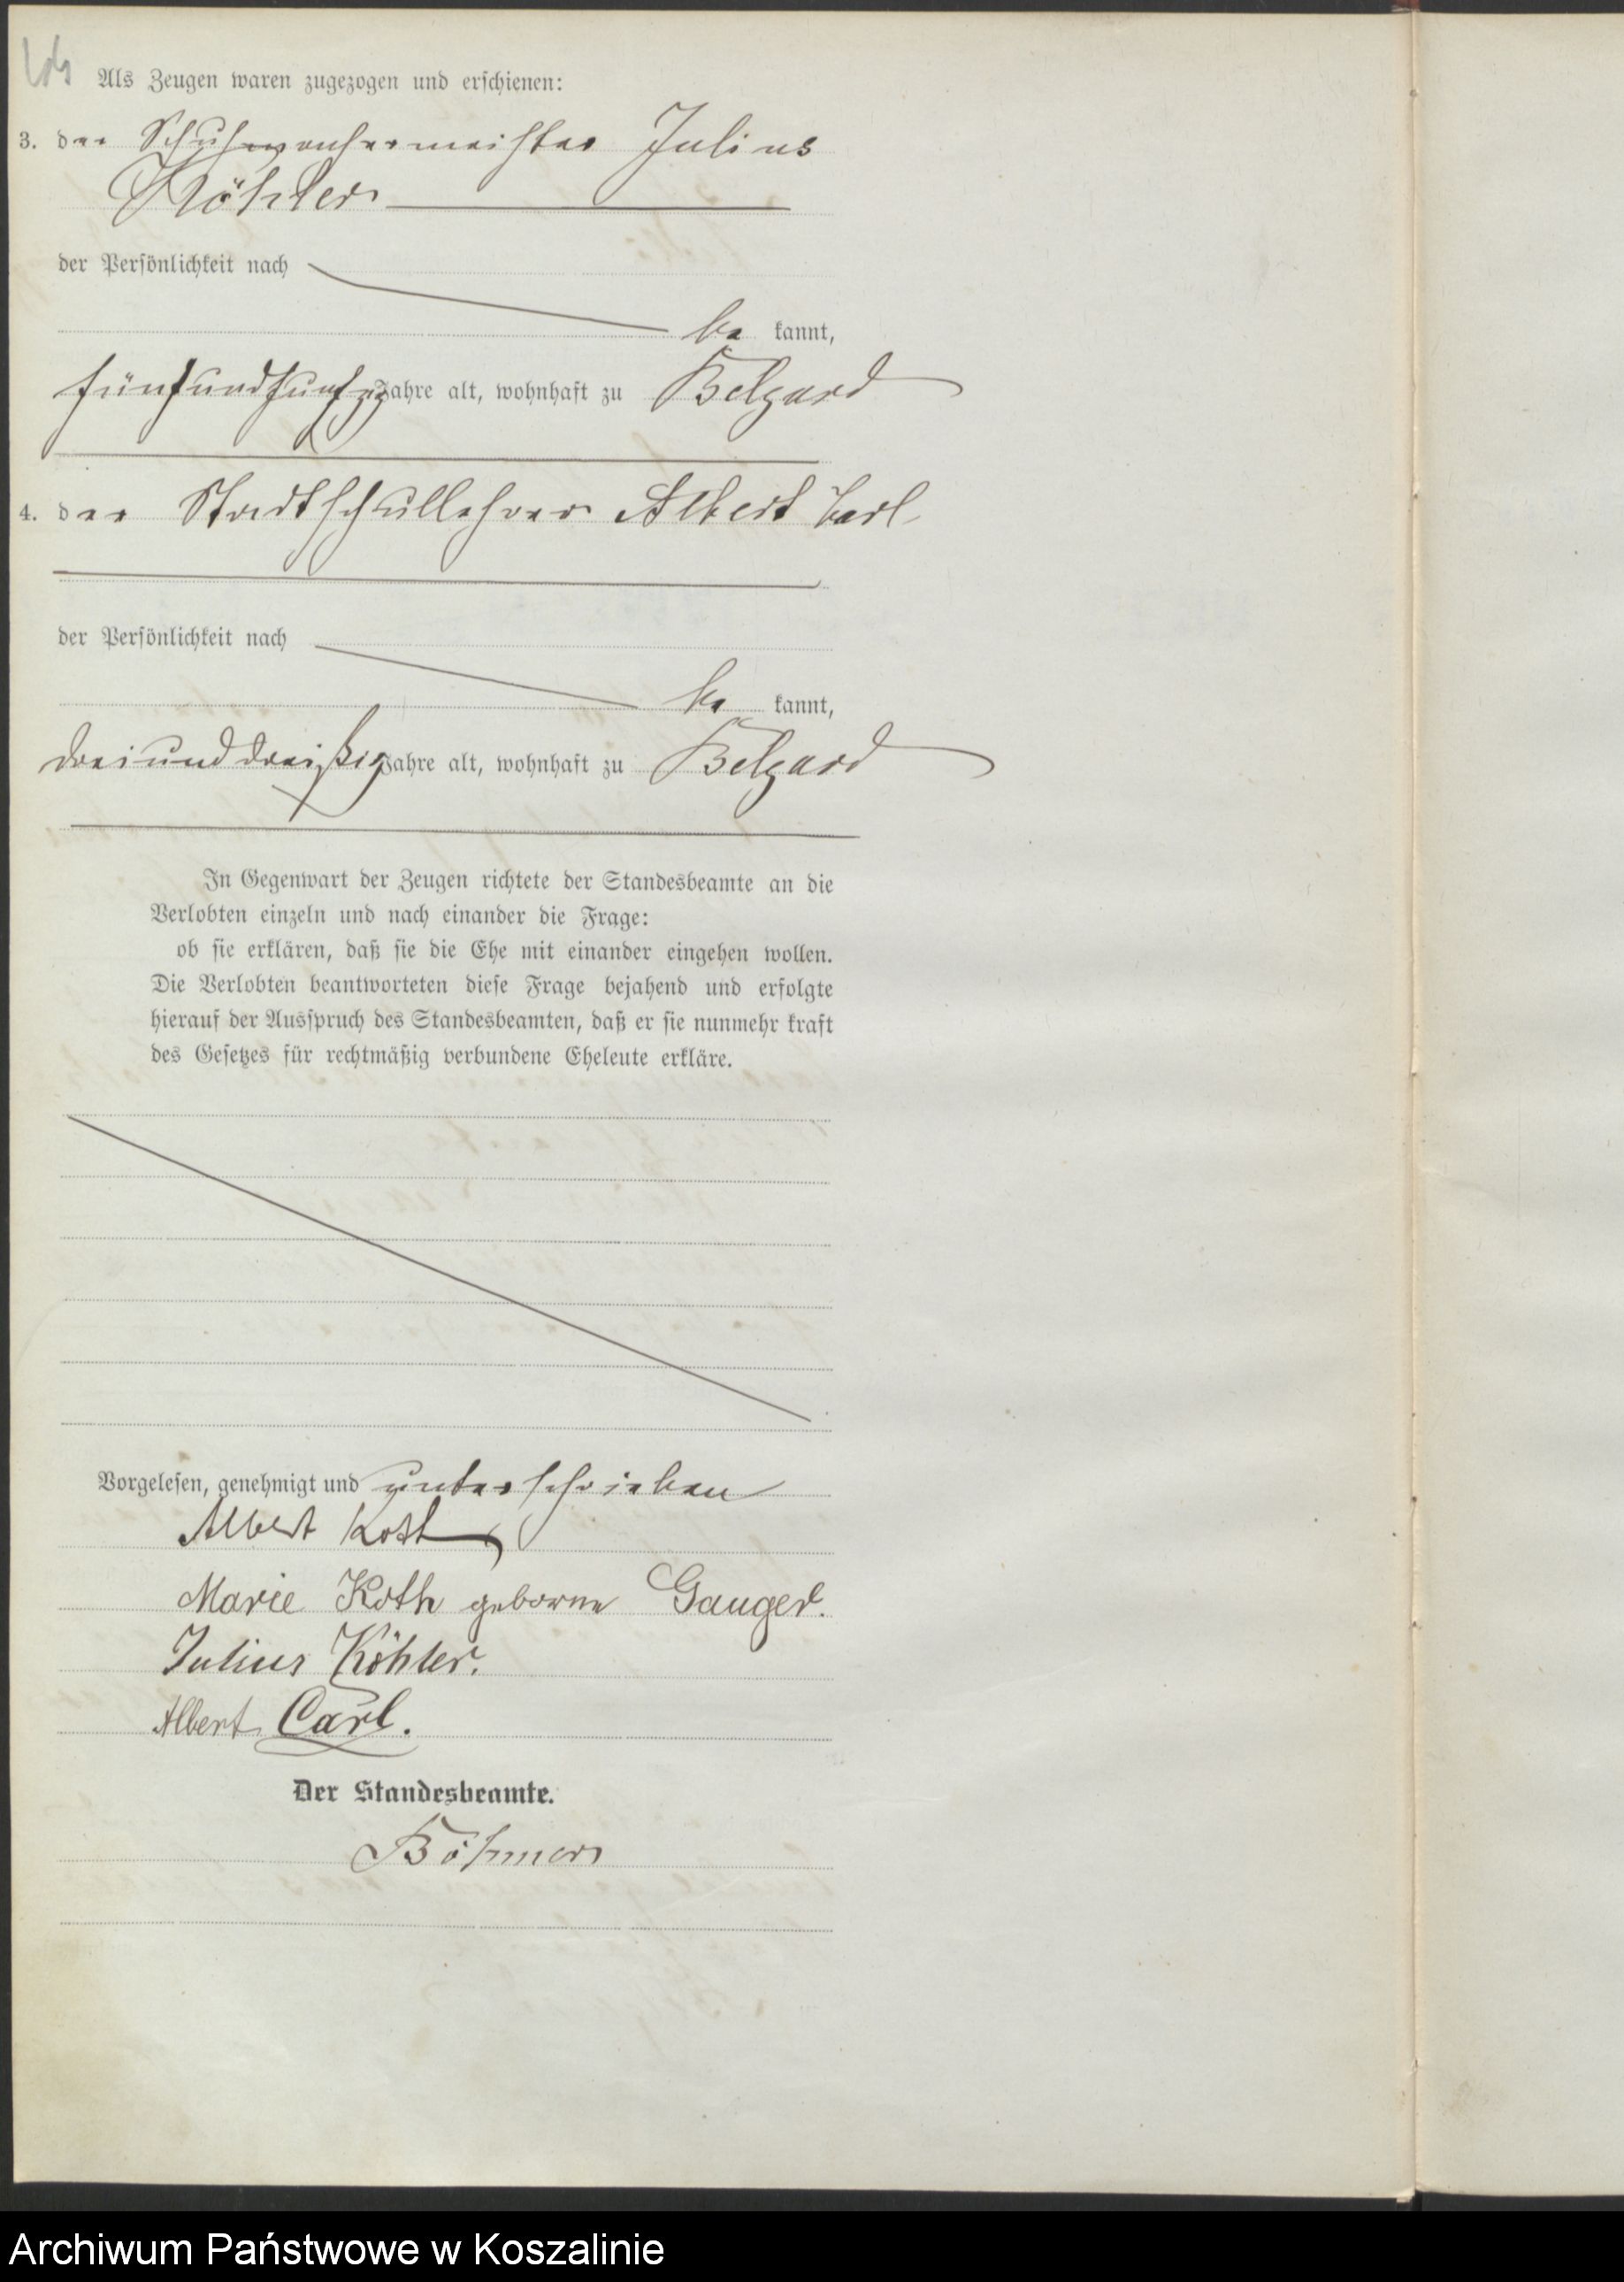 Als Zeugen waren zugezogen und erschienen:
3. der Schuhmachermeister Julius
Köhler
der Persönlichkeit nach
be kannt,
fünfundfunfzig Jahre alt, wohnhaft zu Belgard
4. der Stadtschullehrer Albert Carl
der Persönlichkeit nach
be kannt,
dreiunddreißig Jahre alt, wohnhaft zu Belgard
In Gegenwart der Zeugen richtete der Standesbeamte an die
Verlobten einzeln und nach einander die Frage:
ob sie erklären, daß sie die Ehe mit einander eingehen wollen.
Die Verlobten beantworteten diese Frage bejahend und erfolgte
hierauf der Ausspruch des Standesbeamten, daß er sie nunmehr kraft
des Gesetzes für rechtmäßig verbundene Eheleute erkläre.
Vorgelesen, genehmigt und unterschrieben
Albert Koth
Marie Koth geborne Gauger.
Julius Köhler.
Albert Carl.
Der Standesbeamte.
Böhmer
Archiwum Państwowe w Koszalinie